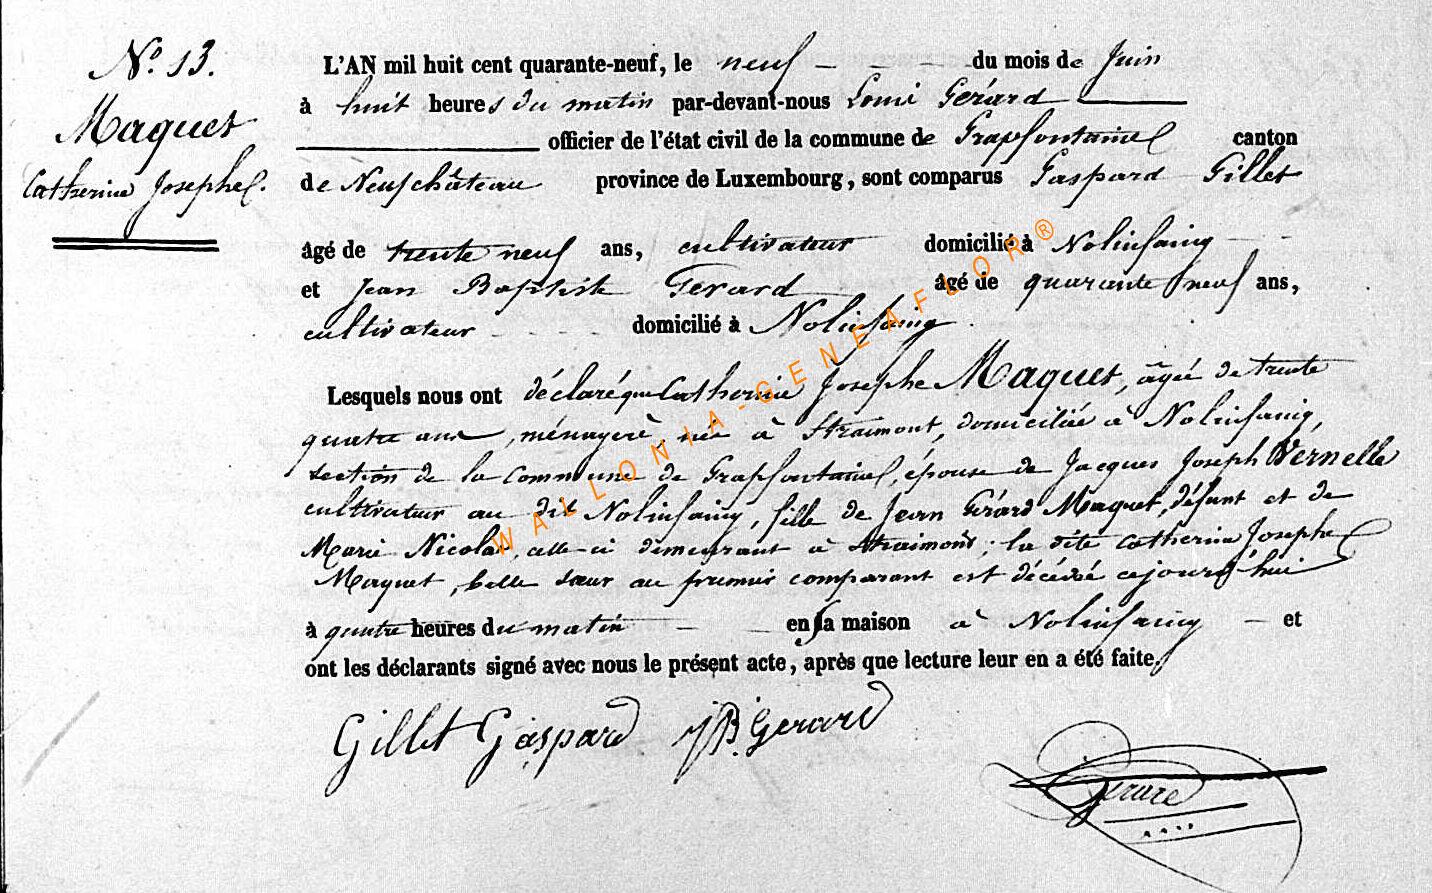 N° 13.
Maquet
Catherine Josephe.
L'AN mil huit cent quarante-neuf, le neuf du mois de Juin
à huit heures du matin par-devant-nous Louis Gérard
officier de l'état civil de la commune de Grapfontaine canton
de Neufchâteau province de Luxembourg, sont comparus Gaspard Gillet
âgé de trente neuf ans, cultivateur domicilié à Nolinfaing
et Jean Baptiste Gerard âgé de quarante neuf ans,
cultivateur domicilié à Nolinfaing.
Lesquels nous ont déclaré que Catherine Josephe Maquet, âgée de trente
quatre ans, ménagère, née à Straimont, domiciliée à Nolinfaing,
section de la commune de Grapfontaine, épouse de Jacques Joseph Vernelle
cultivateur au dit Nolinfaing, fille de Jean Gérard Maquet, défunt et de
Marie Nicolas, celle-ci demeurant à Straimont; la dite Catherine Josephe
Maquet, belle sœur au premier comparant est décédée cejourd'hui
à quatre heures du matin en sa maison à Nolinfaing et
ont les déclarants signé avec nous le présent acte, après que lecture leur en a été faite.
Gillet Gaspard JB. Gerard
Gerard
WALLONIA-GENEAFLOR®